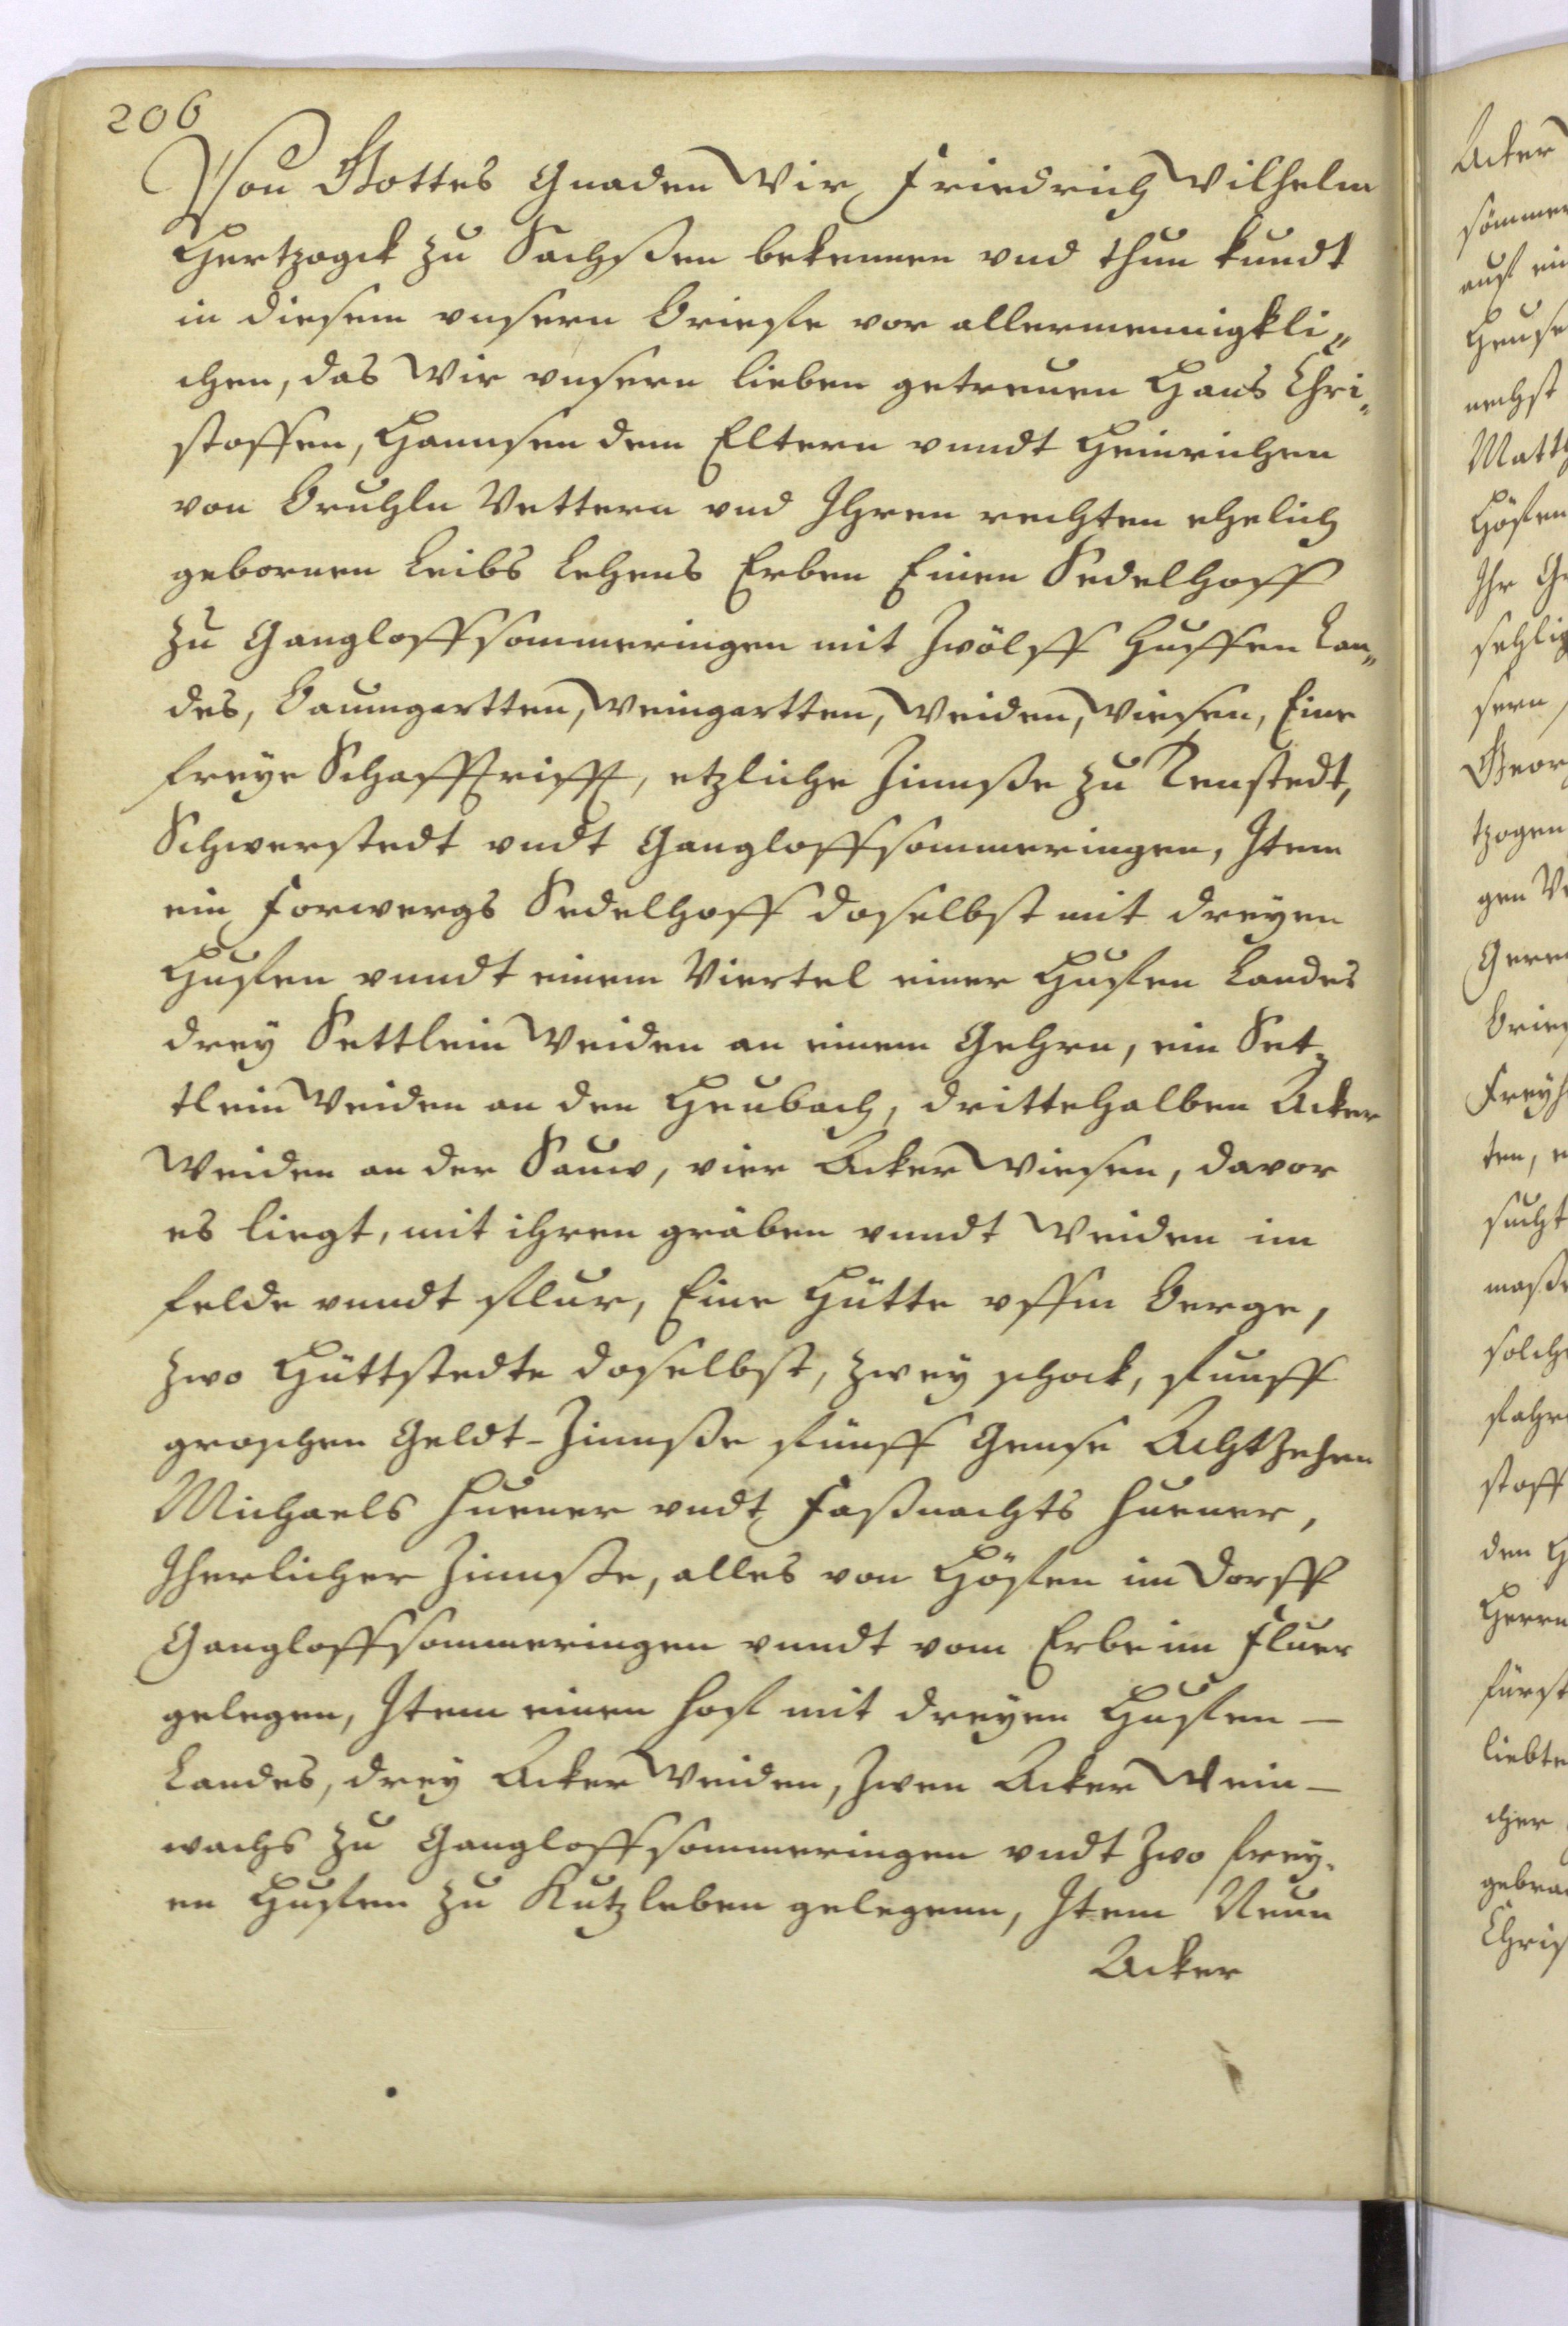 206
Von Gottes Gnaden Wir Friedrich Wilhelm
Hertzogk zu Sachßen bekennen vnd thun kundt
in diesem vnsern Brieffe vor allermennigkli„
chen, das Wir vnsern lieben getreuen Hans Chri„
stoffen, Hannsen dem Eltern vnndt Heinrichen
von Bruhln Vettern vnd Ihren rechten ehelich
gebornen Leibs Lehens Erben Einen Sedelhoff
zu Gangloffsommeringen mit Zwölff Huffen Lan„
des, Baumgartten, Weingartten, Weiden, Wiesen, Eine
freye Schafftrifft, etzliche Zinnße zu Tenstedt,
Schwerstedt vndt Gangloffsommeringen, Item
ein Forwergs Sedelhoff daselbst mit dreyen
Huffen vnndt einem Viertel einer Huffen Landes
drey Settlein Weiden an einem Gehrn, ein Set-
tlein Weiden an den Heubach, drittehalben Acker
Weiden an der Sauw, vier Acker Wiesen, davor
es liegt, mit ihren gräben vnndt Weiden im
felde vnndt flur, Eine Hütte vffm Berge,
zwo Hüttstedte daselbst, zwey schock, fünff
groschen Geldt-Zinnße fünff Gense Achtzehen
Michaels Huener vndt Faßnachts Huener,
Iherlicher Zinnße, alles von Höffen im Dorff
Gangloffsommeringen vnndt vom Erbe im Fluer
gelegen, Item einen Hoff mit dreyen Huffen –
Landes, drey Acker Weiden, Zwen Acker Wein –
wachs zu Gangloffsommeringen vndt Zwo frey-
en Huffen zu Kutzleben gelegenn, Item Neun
Acker
Acker